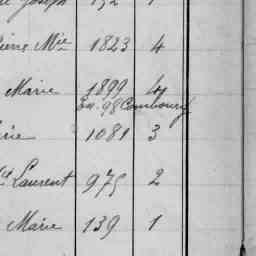 Joseph 192 1
ierre Mie 1823 4
Marie 1899 4
En. 98 Combourg
rie 1081 3
Laurent 975 2
Marie 139 1